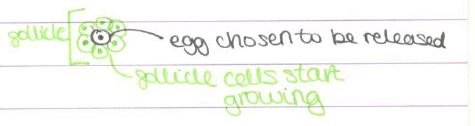 follicle
egg chosen to be released
follicle cells start
growing